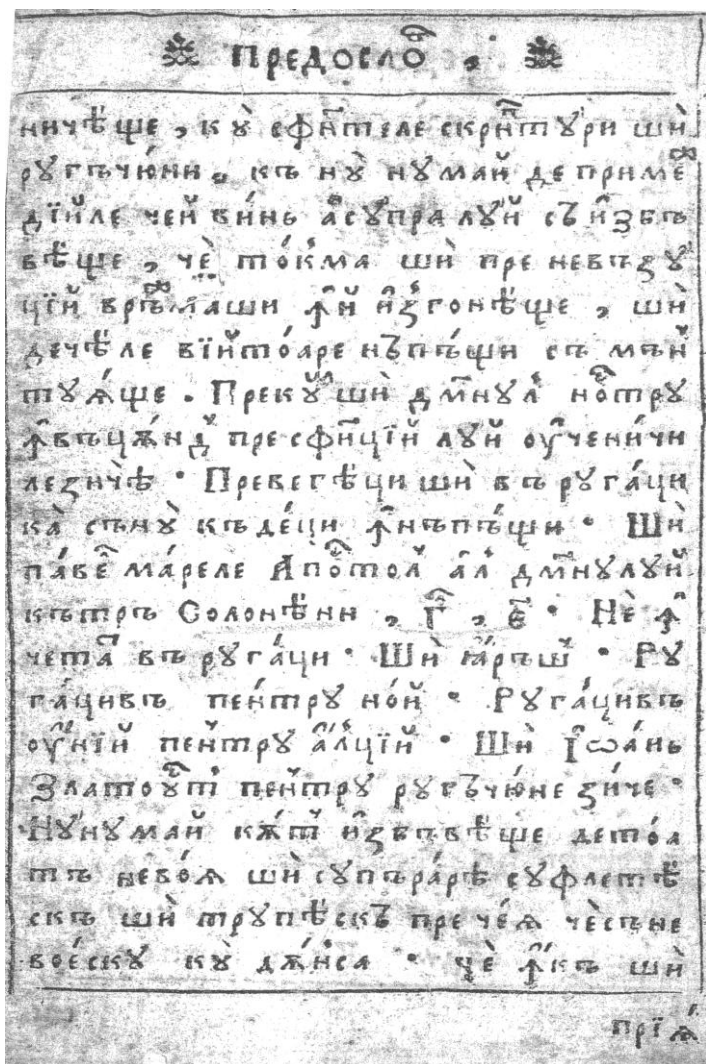 ПРЕДОСЛО҇ ,
ничѣще , кꙋ̀ сфн҃теле скрип҃тꙋри шѝ
рꙋгъчю́ни , къ нꙋ̀ нꙋмай де приме҇
дїйле чей ви́нь асꙋпра лꙋй съ и҆збъ
вѣще , чѐ то́кма шѝ пре невъзꙋ
цїй връ҇маши ꙟ҆й и҆згонѣще , шѝ
дечѣле вїйто́аре нъпъ́щи съ мѫн
тꙋѧ́ще . Прекꙋ҇ шѝ дм҃нꙋл но҇трꙋ
ꙟ҆въцѫнд пресфи҃нцїй лꙋй оу҆чени́чи
ле зи́чѣ · Превегѣци шѝ въ рꙋга́ци
ка̀ сънꙋ̀ къде́ци ꙟ҆нъпъ́щи · Шѝ
па́ве҇ ма́реле Апо҇тол а҆л дм҃нꙋлꙋй
кътръ Солонѣни , г҃ , є҃ · Нѐ ꙟ҆
чета҇ въ рꙋга́ци · Шѝ ꙗ҆́ръш · Рꙋ
га́цивъ пе́нтрꙋ но́й · Рꙋга́цивъ
оу҆́нїй пе́нтрꙋ а҆́лцїй · Шѝ І҆ѡа́нь
Златоу҇т пе́нтрꙋ рꙋгъчю́не зи́че ·
Нꙋ́нꙋмай кѫ́т и҆збъвѣще дето́а
тъ нево́ѧ шѝ сꙋпъра́рѣ сꙋфлетѣ
скъ шѝ трꙋпѣскъ пре че́ѧ чѐсъне
вое́скꙋ кꙋ̀ дѫ́нса · чѐ ꙟ҆къ шѝ
прїѧ́